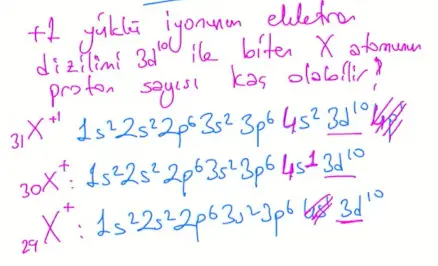 +1 yüklü iyonunun elektron
dizilimi 3d¹⁰ ile biten X atomunun
proton sayısı kaç olabilir?
₃₁X⁺¹ 1s² 2s² 2p⁶ 3s² 3p⁶ 4s² 3d¹⁰
₃₀X⁺: 1s² 2s² 2p⁶ 3s² 3p⁶ 4s¹ 3d¹⁰
₂₉X⁺: 1s² 2s² 2p⁶ 3s² 3p⁶ 3d¹⁰